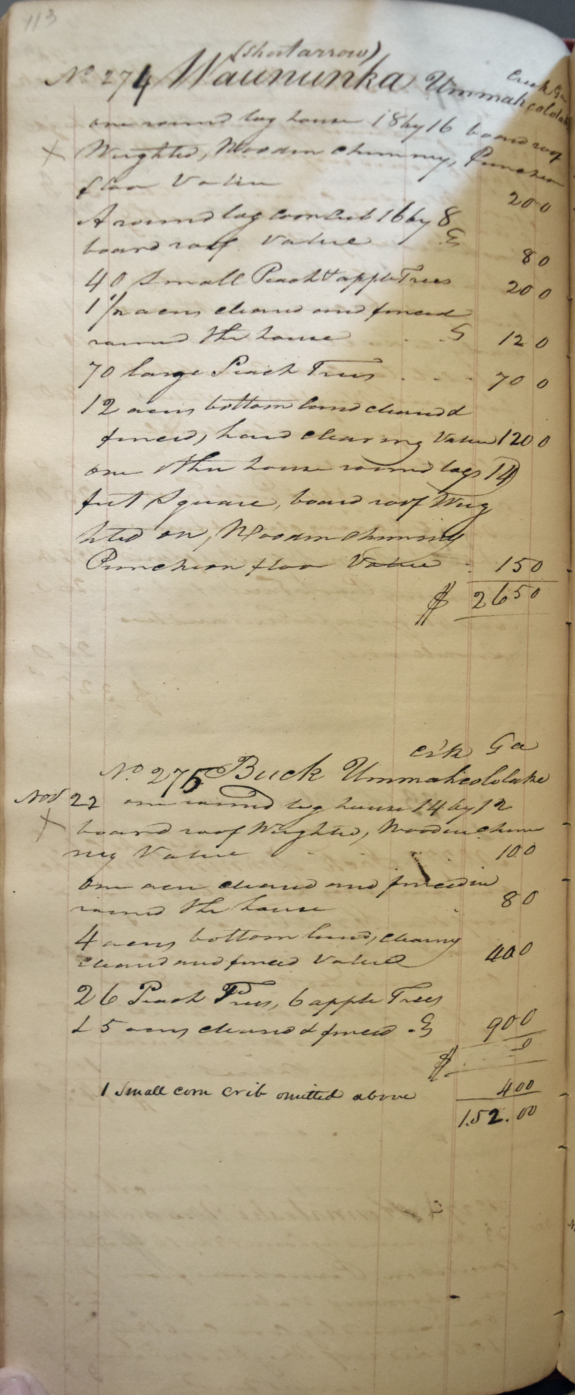 113
(Short arrow)
No 274 Waununka Ummahcolola
Creek Ga
one round log house 18 by 16 board roof
X Weighted, Wooden chimney, Puncheon
floor Value 20 0
A round log corn Crib 16 by 8
board roof Value 8 0
40 Small Peach & apple Trees 20 0
1 1/2 acres cleared and fenced
round the house 12 0
70 large Peach Trees 70 0
12 acres bottom land cleared &
fenced, hard clearing Value 120 0
one other house round logs 14
feet Square, board roof Weig
hted on, Wooden chimney
Puncheon floor Value 150
$ 2650
crk Ga
No 275 Buck Ummahcolotake
Nov 22 one round log house 14 by 12
X board roof Weighted, Wooden chim
ney Value 100
one acre cleared and fenced in
round the house 80
4 acres bottom land, clearing
cleared and fenced Value 400
26 Peach Trees, 6 apple Trees
& 5 acres cleared & fenced 900
$
1 Small corn crib omitted above 400
152.00